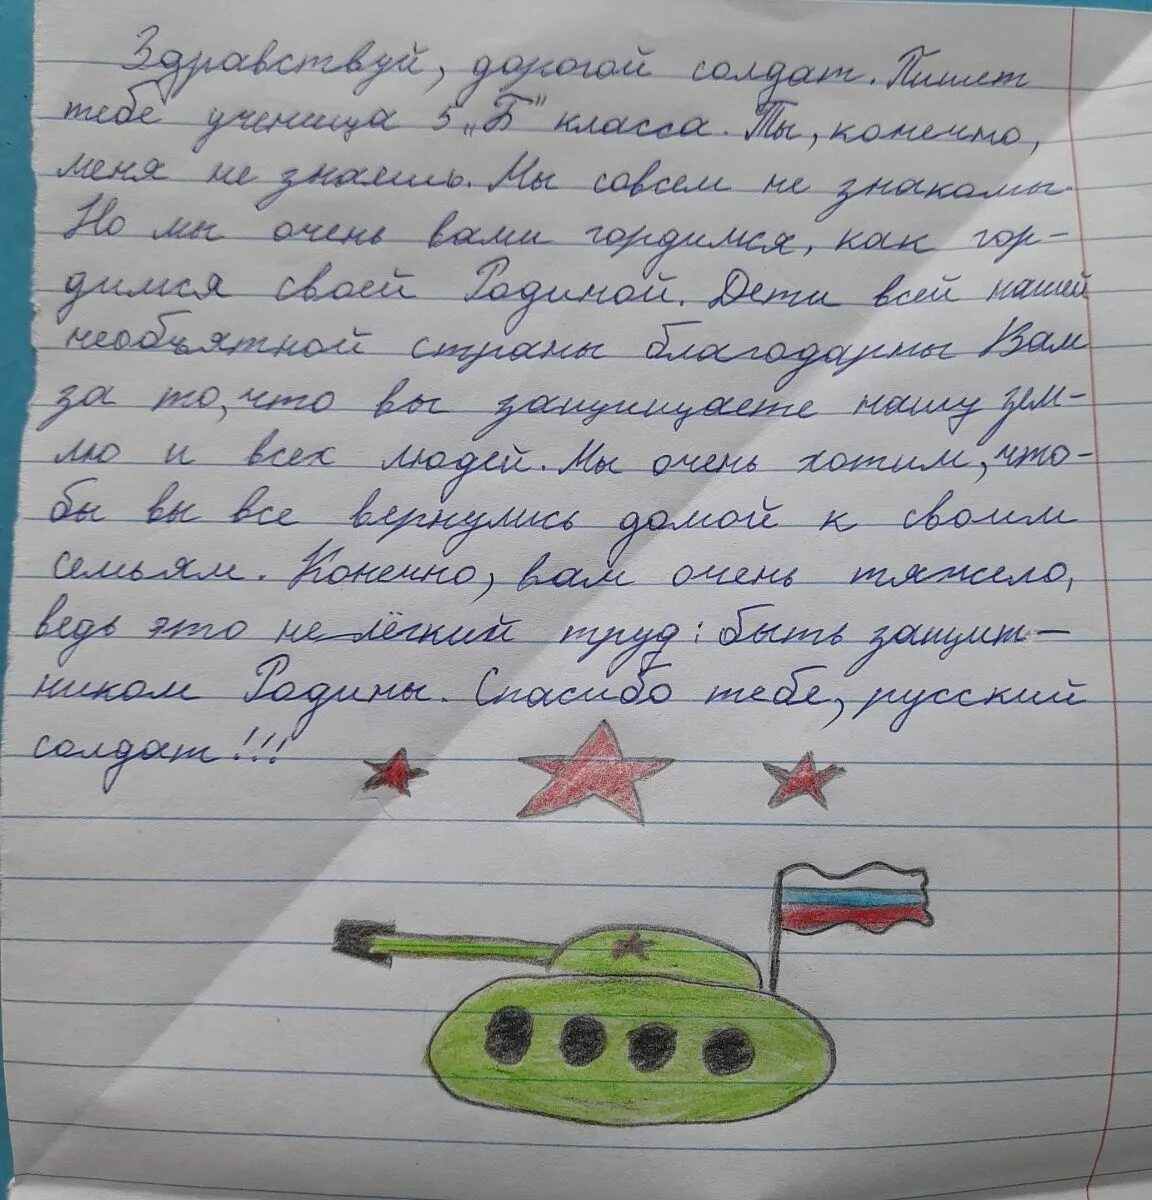 Здравствуй, дорогой солдат. Пишет
тебе ученица 5 „Б" класса. Ты, конечно,
меня не знаешь. Мы совсем не знакомы.
Но мы очень вами гордимся, как гор-
димся своей Родиной. Дети всей нашей
необъятной страны благодарны Вам
за то, что вы защищаете нашу зем-
лю и всех людей. Мы очень хотим, что-
бы вы все вернулись домой к своим
семьям. Конечно, вам очень тяжело,
ведь это не лёгкий труд: быть защит-
ником Родины. Спасибо тебе, русский
солдат!!!